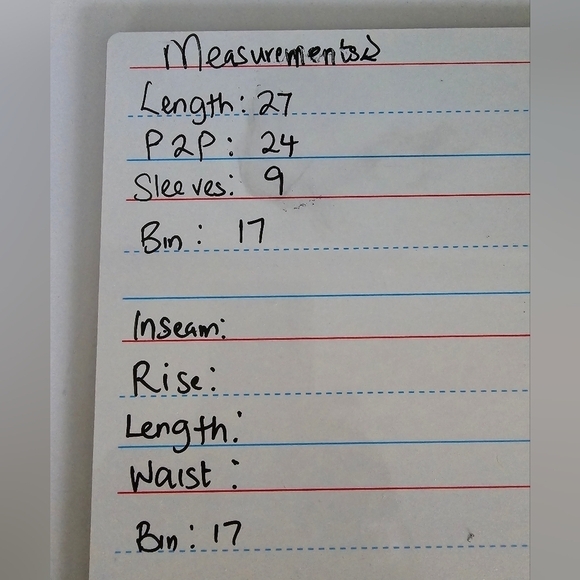 Measurements
Length: 27
P2P: 24
Sleeves: 9
Bin: 17
Inseam:
Rise:
Length:
Waist:
Bin: 17